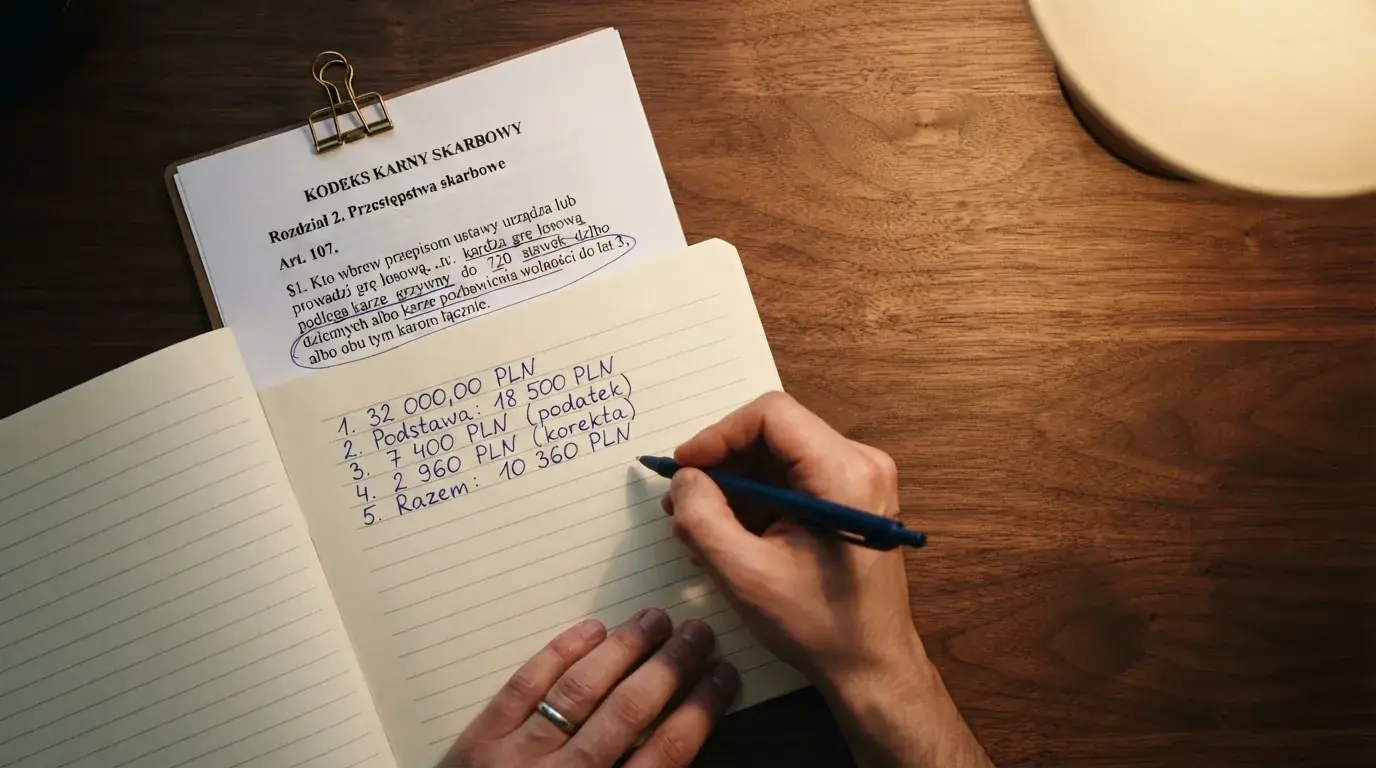 KODEKS KARNY SKARBOWY
Rozdział 2. Przestępstwa skarbowe
Art. 107.
§1. Kto wbrew przepisom ustawy urządza lub
prowadzi grę losową grę losową
podlega karze grzywny do 720 stawek
dziennych albo karze pozbawienia wolności do lat 3,
albo obu tym karom łącznie.
1. 32 000,00 PLN
2. Podstawa: 18 500 PLN
3. 7 400 PLN (podatek)
4. 2 960 PLN (korekta)
5. Razem: 10 360 PLN